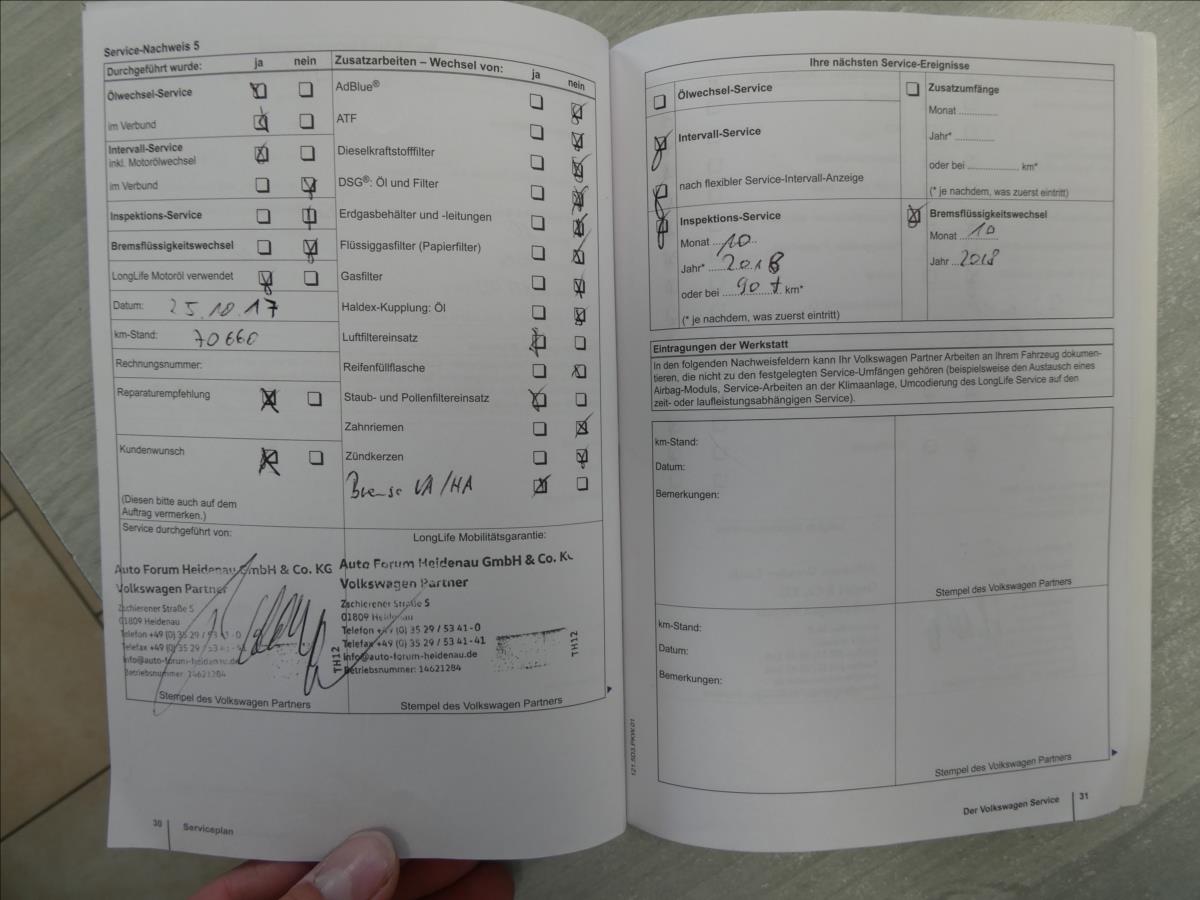 Service-Nachweis 5
Durchgeführt wurde: ja nein
Ölwechsel-Service
im Verbund
Intervall-Service
inkl. Motorölwechsel
im Verbund
Inspektions-Service
Bremsflüssigkeitswechsel
LongLife Motoröl verwendet
Datum: 25.10.17
km-Stand: 70660
Rechnungsnummer:
Reparaturempfehlung
Kundenwunsch
(Diesen bitte auch auf dem
Auftrag vermerken.)
Zusatzarbeiten – Wechsel von: ja nein
AdBlue®
ATF
Dieselkraftstofffilter
DSG®: Öl und Filter
Erdgasbehälter und -leitungen
Flüssiggasfilter (Papierfilter)
Gasfilter
Haldex-Kupplung: Öl
Luftfiltereinsatz
Reifenfüllflasche
Staub- und Pollenfiltereinsatz
Zahnriemen
Zündkerzen
Bremse VA/HA
Service durchgeführt von:
Auto Forum Heidenau GmbH & Co. KG
Volkswagen Partner
Zschierener Straße 5
01809 Heidenau
Telefon +49 (0) 35 29 / 53 41-0
Telefax +49 (0) 35 29 / 53 41-41
info@auto-forum-heidenau.de
Betriebsnummer: 14621284
TH12
Stempel des Volkswagen Partners
LongLife Mobilitätsgarantie:
Auto Forum Heidenau GmbH & Co. KG
Volkswagen Partner
Zschierener Straße 5
01809 Heidenau
Telefon +49 (0) 35 29 / 53 41-0
Telefax +49 (0) 35 29 / 53 41-41
info@auto-forum-heidenau.de
Betriebsnummer: 14621284
TH12
Stempel des Volkswagen Partners
30 Serviceplan
Ihre nächsten Service-Ereignisse
Ölwechsel-Service
Intervall-Service
nach flexibler Service-Intervall-Anzeige
Inspektions-Service
Monat 10
Jahr* 2018
oder bei 90 t km*
(* je nachdem, was zuerst eintritt)
Zusatzumfänge
Monat
Jahr*
oder bei km*
(* je nachdem, was zuerst eintritt)
Bremsflüssigkeitswechsel
Monat 10
Jahr 2018
Eintragungen der Werkstatt
In den folgenden Nachweisfeldern kann Ihr Volkswagen Partner Arbeiten an Ihrem Fahrzeug dokumen-
tieren, die nicht zu den festgelegten Service-Umfängen gehören (beispielsweise den Austausch eines
Airbag-Moduls, Service-Arbeiten an der Klimaanlage, Umcodierung des LongLife Service auf den
zeit- oder laufleistungsabhängigen Service).
km-Stand:
Datum:
Bemerkungen:
Stempel des Volkswagen Partners
km-Stand:
Datum:
Bemerkungen:
Stempel des Volkswagen Partners
121.5D3.PKW.01
Der Volkswagen Service 31